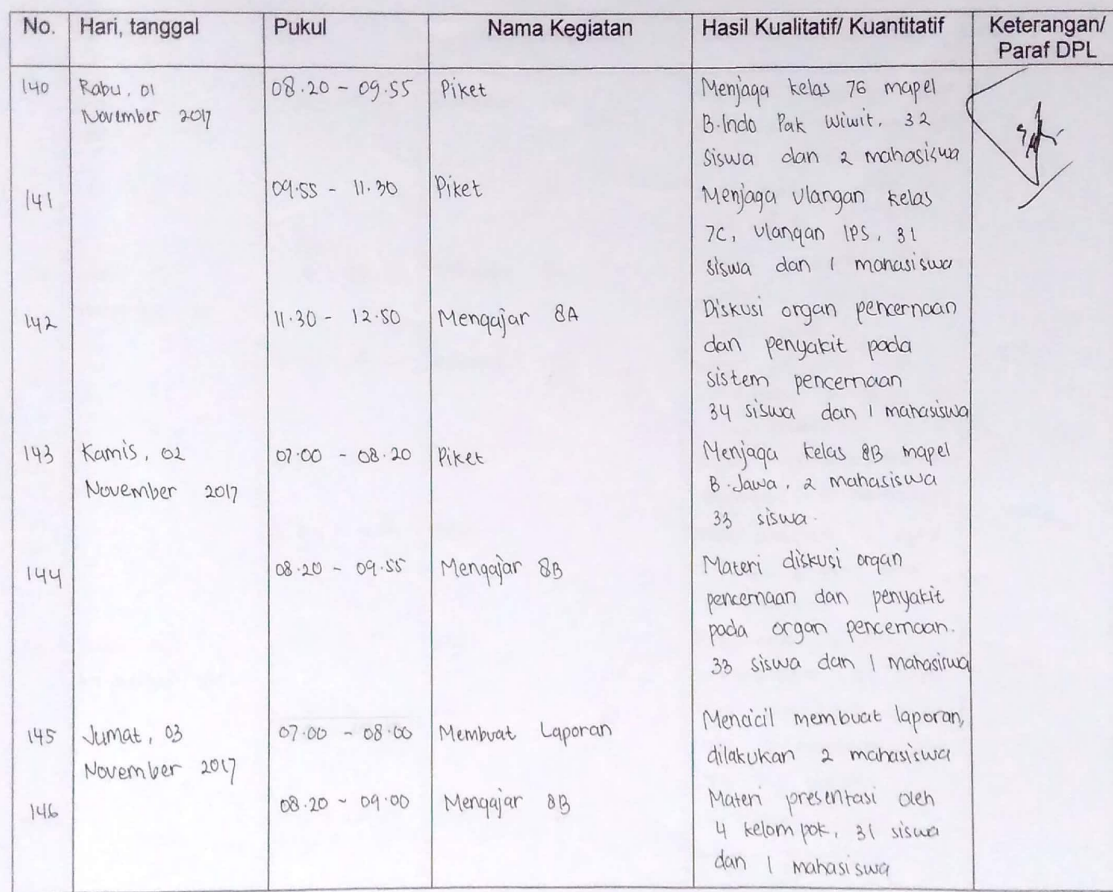 No. Hari, tanggal Pukul Nama Kegiatan Hasil Kualitatif/ Kuantitatif Keterangan/
Paraf DPL
140 Rabu, 01 08.20 - 09.55 Piket Menjaga kelas 7G mapel
November 2017 B.Indo Pak Wiwit, 32
siswa dan 2 mahasiswa
141 09.55 - 11.30 Piket Menjaga ulangan kelas
7C, ulangan IPS, 31
siswa dan 1 mahasiswa
142 11.30 - 12.50 Mengajar 8A Diskusi organ pencernaan
dan penyakit pada
sistem pencernaan
34 siswa dan 1 mahasiswa
143 Kamis, 02 07.00 - 08.20 Piket Menjaga kelas 8B mapel
November 2017 B.Jawa, 2 mahasiswa
33 siswa.
144 08.20 - 09.55 Mengajar 8B Materi diskusi organ
pencernaan dan penyakit
pada organ pencernaan.
33 siswa dan 1 mahasiswa
145 Jumat, 03 07.00 - 08.00 Membuat Laporan Mencicil membuat laporan,
November 2017 dilakukan 2 mahasiswa
146 08.20 - 09.00 Mengajar 8B Materi presentasi oleh
4 kelompok, 31 siswa
dan 1 mahasiswa